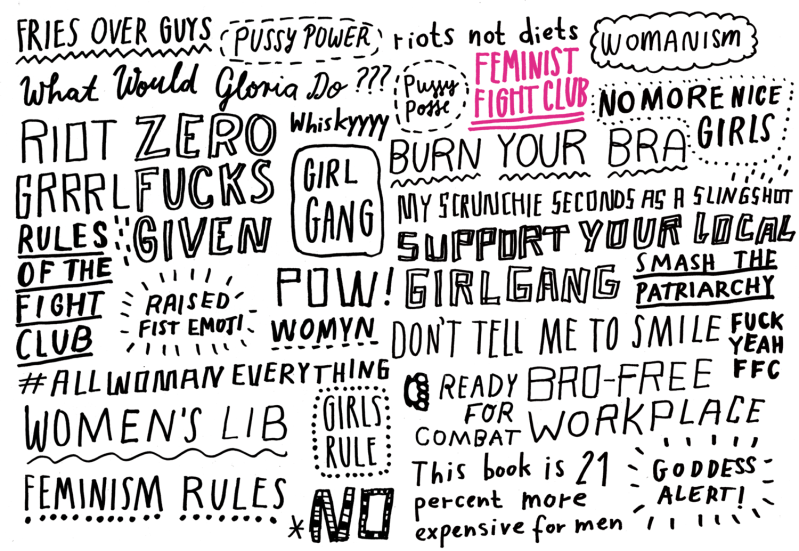 FRIES OVER GUYS
PUSSY POWER
riots not diets
WOMANISM
What Would Gloria Do ???
Pussy
Posse
FEMINIST
FIGHT CLUB
NO MORE NICE
GIRLS
RIOT
GRRRL
ZERO
FUCKS
GIVEN
Whiskyyyy
GIRL
GANG
BURN YOUR BRA
MY SCRUNCHIE SECONDS AS A SLINGSHOT
SUPPORT YOUR LOCAL
GIRLGANG
RULES
OF THE
FIGHT
CLUB
RAISED
FIST EMOJI
POW!
SMASH THE
PATRIARCHY
WOMYN
DON'T TELL ME TO SMILE
FUCK
YEAH
FFC
#ALLWOMANEVERYTHING
READY
FOR
COMBAT
BRO-FREE
WORKPLACE
WOMEN'S LIB
GIRLS
RULE
FEMINISM RULES
*NO
This book is 21
percent more
expensive for men
GODDESS
ALERT!